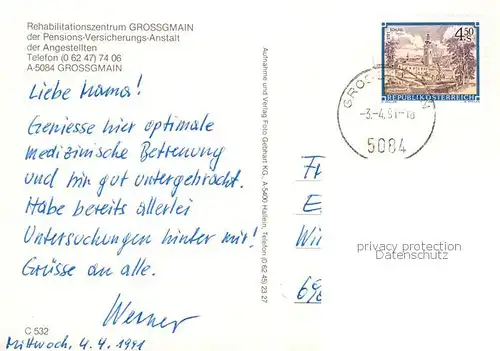 Rehabilitationszentrum GROSSGMAIN
der Pensions-Versicherungs-Anstalt
der Angestellten
Telefon (0 62 47) 74 06
A-5084 GROSSGMAIN
Liebe Mama!
Geniesse hier optimale
medizinische Betreuung
und bin gut untergebracht.
Habe bereits allerlei
Untersuchungen hinter mir!
Grüsse an alle.
Werner
C 532
Mittwoch, 4.4.1991
Aufnahme und Verlag Foto Gebhart KG., A-5400 Hallein, Telefon (0 62 45) 23 27
4.50
S
REPUBLIK ÖSTERREICH
5084
privacy protection
Datenschutz